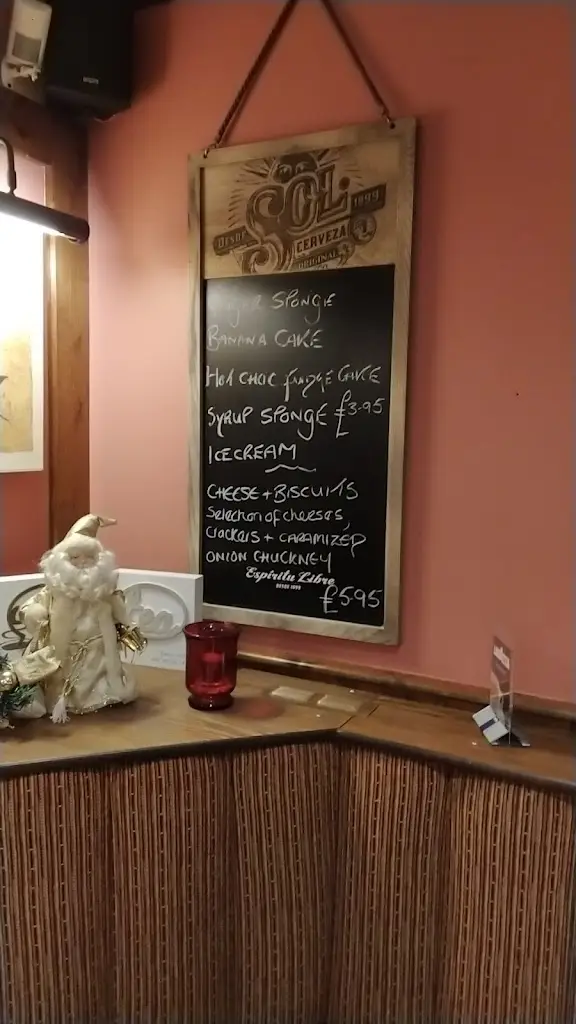 SOL
DESDE 1899
CERVEZA
ORIGINAL
SPONGE
BANANA CAKE
HOT CHOC FUDGE CAKE
SYRUP SPONGE £3.95
ICECREAM
CHEESE + BISCUITS
Selection of cheeses,
CRACKERS + CARAMIZED
ONION CHUCKNEY
Espíritu Libre
DESDE 1899
£5.95